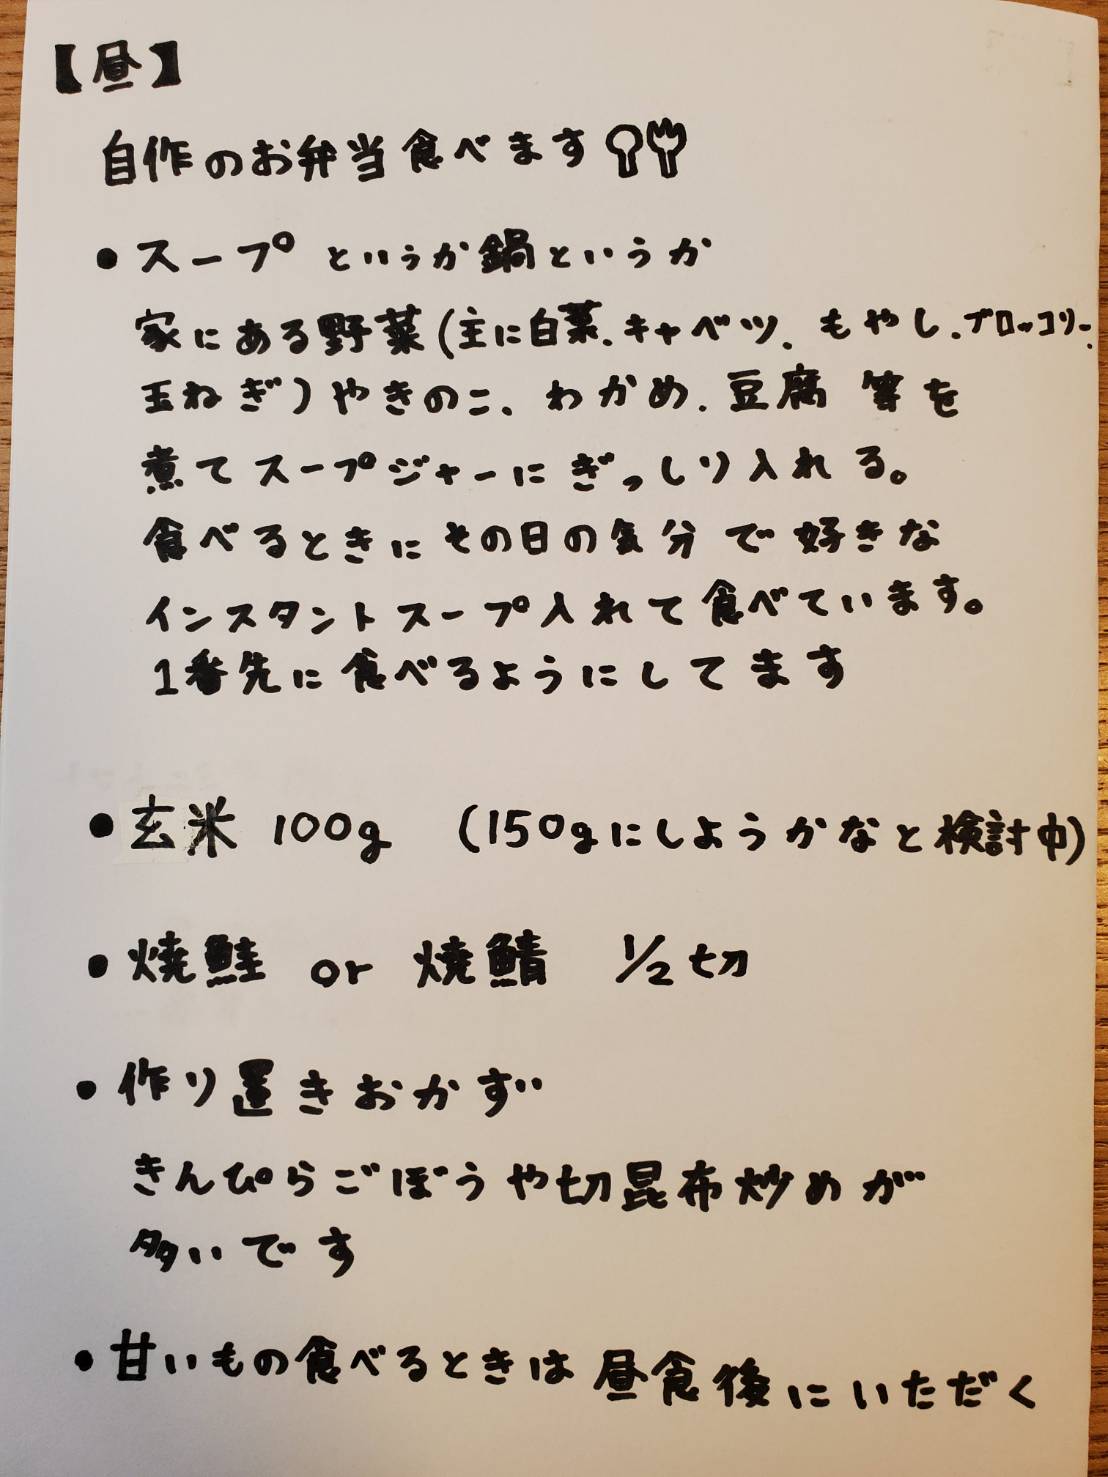 【昼】
自作のお弁当食べます
• スープ というか鍋というか
家にある野菜(主に白菜、キャベツ、もやし、ブロッコリー、
玉ねぎ)やきのこ、わかめ、豆腐 等を
煮てスープジャーにぎっしり入れる。
食べるときにその日の気分で好きな
インスタントスープ入れて食べています。
1番先に食べるようにしてます
• 玄米 100g (150gにしようかなと検討中)
• 焼鮭 or 焼鯖 1/2切
• 作り置きおかず
きんぴらごぼうや切昆布炒めが
多いです
• 甘いもの食べるときは昼食後にいただく